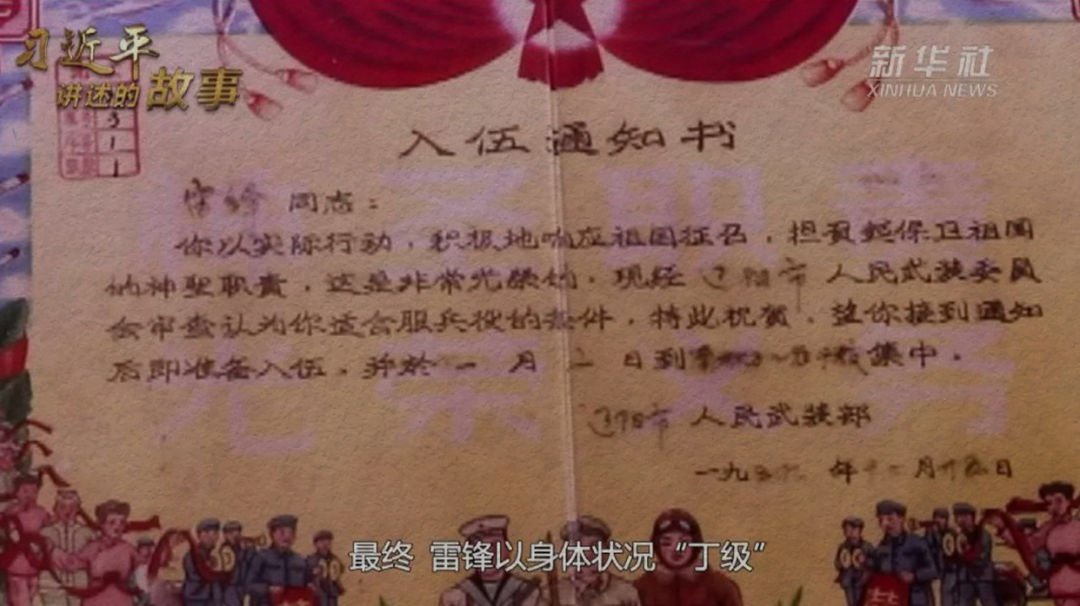 习近平
讲述的故事
新华社
XINHUA NEWS
3
1
1
入伍通知书
雷锋 同志：
你以实际行动，积极地响应祖国征召，担负起保卫祖国
的神圣职责，这是非常光荣的。现经 辽阳市 人民武装委员
会审查认为你适合服兵役的条件，特此祝贺，望你接到通知
后即准备入伍，并于一月二日到 集中。
辽阳市 人民武装部
一九五九 年十二月 日
最终 雷锋以身体状况“丁级”